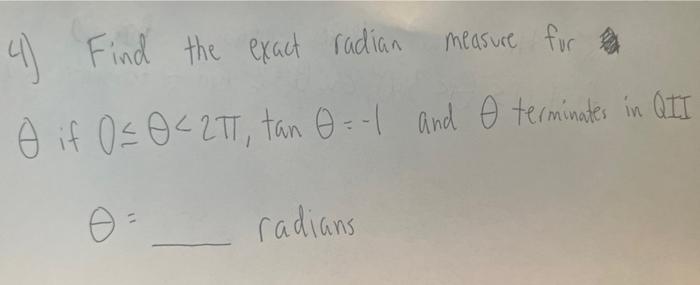 4) Find the exact radian measure for
θ if 0≤θ<2π, tan θ=-1 and θ terminates in QII
θ = ____ radians